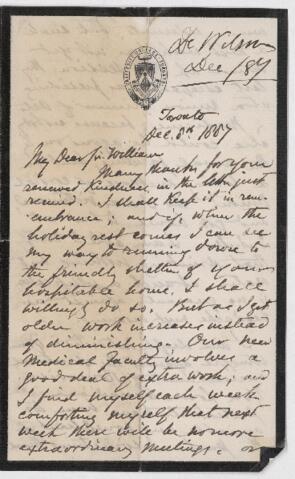 Dr Wilson
Dec /87
UNIVERSITY COLLEGE TORONTO
Toronto
Dec. 8th 1887
My Dear Sir William
Many thanks for your
renewed kindness in the just
received. I shall keep it in rem-
embrance; and if, when the
holiday rest comes I can see
my way to running down to
the friendly shelter of your
hospitable home. I shall
willingly do so. But as I get
older work increases instead
of diminishing. Our new
Medical Faculty involves a
good deal of extra work; and
I find myself each week
comforting myself that next
week there will be no more
extraordinary meetings. or